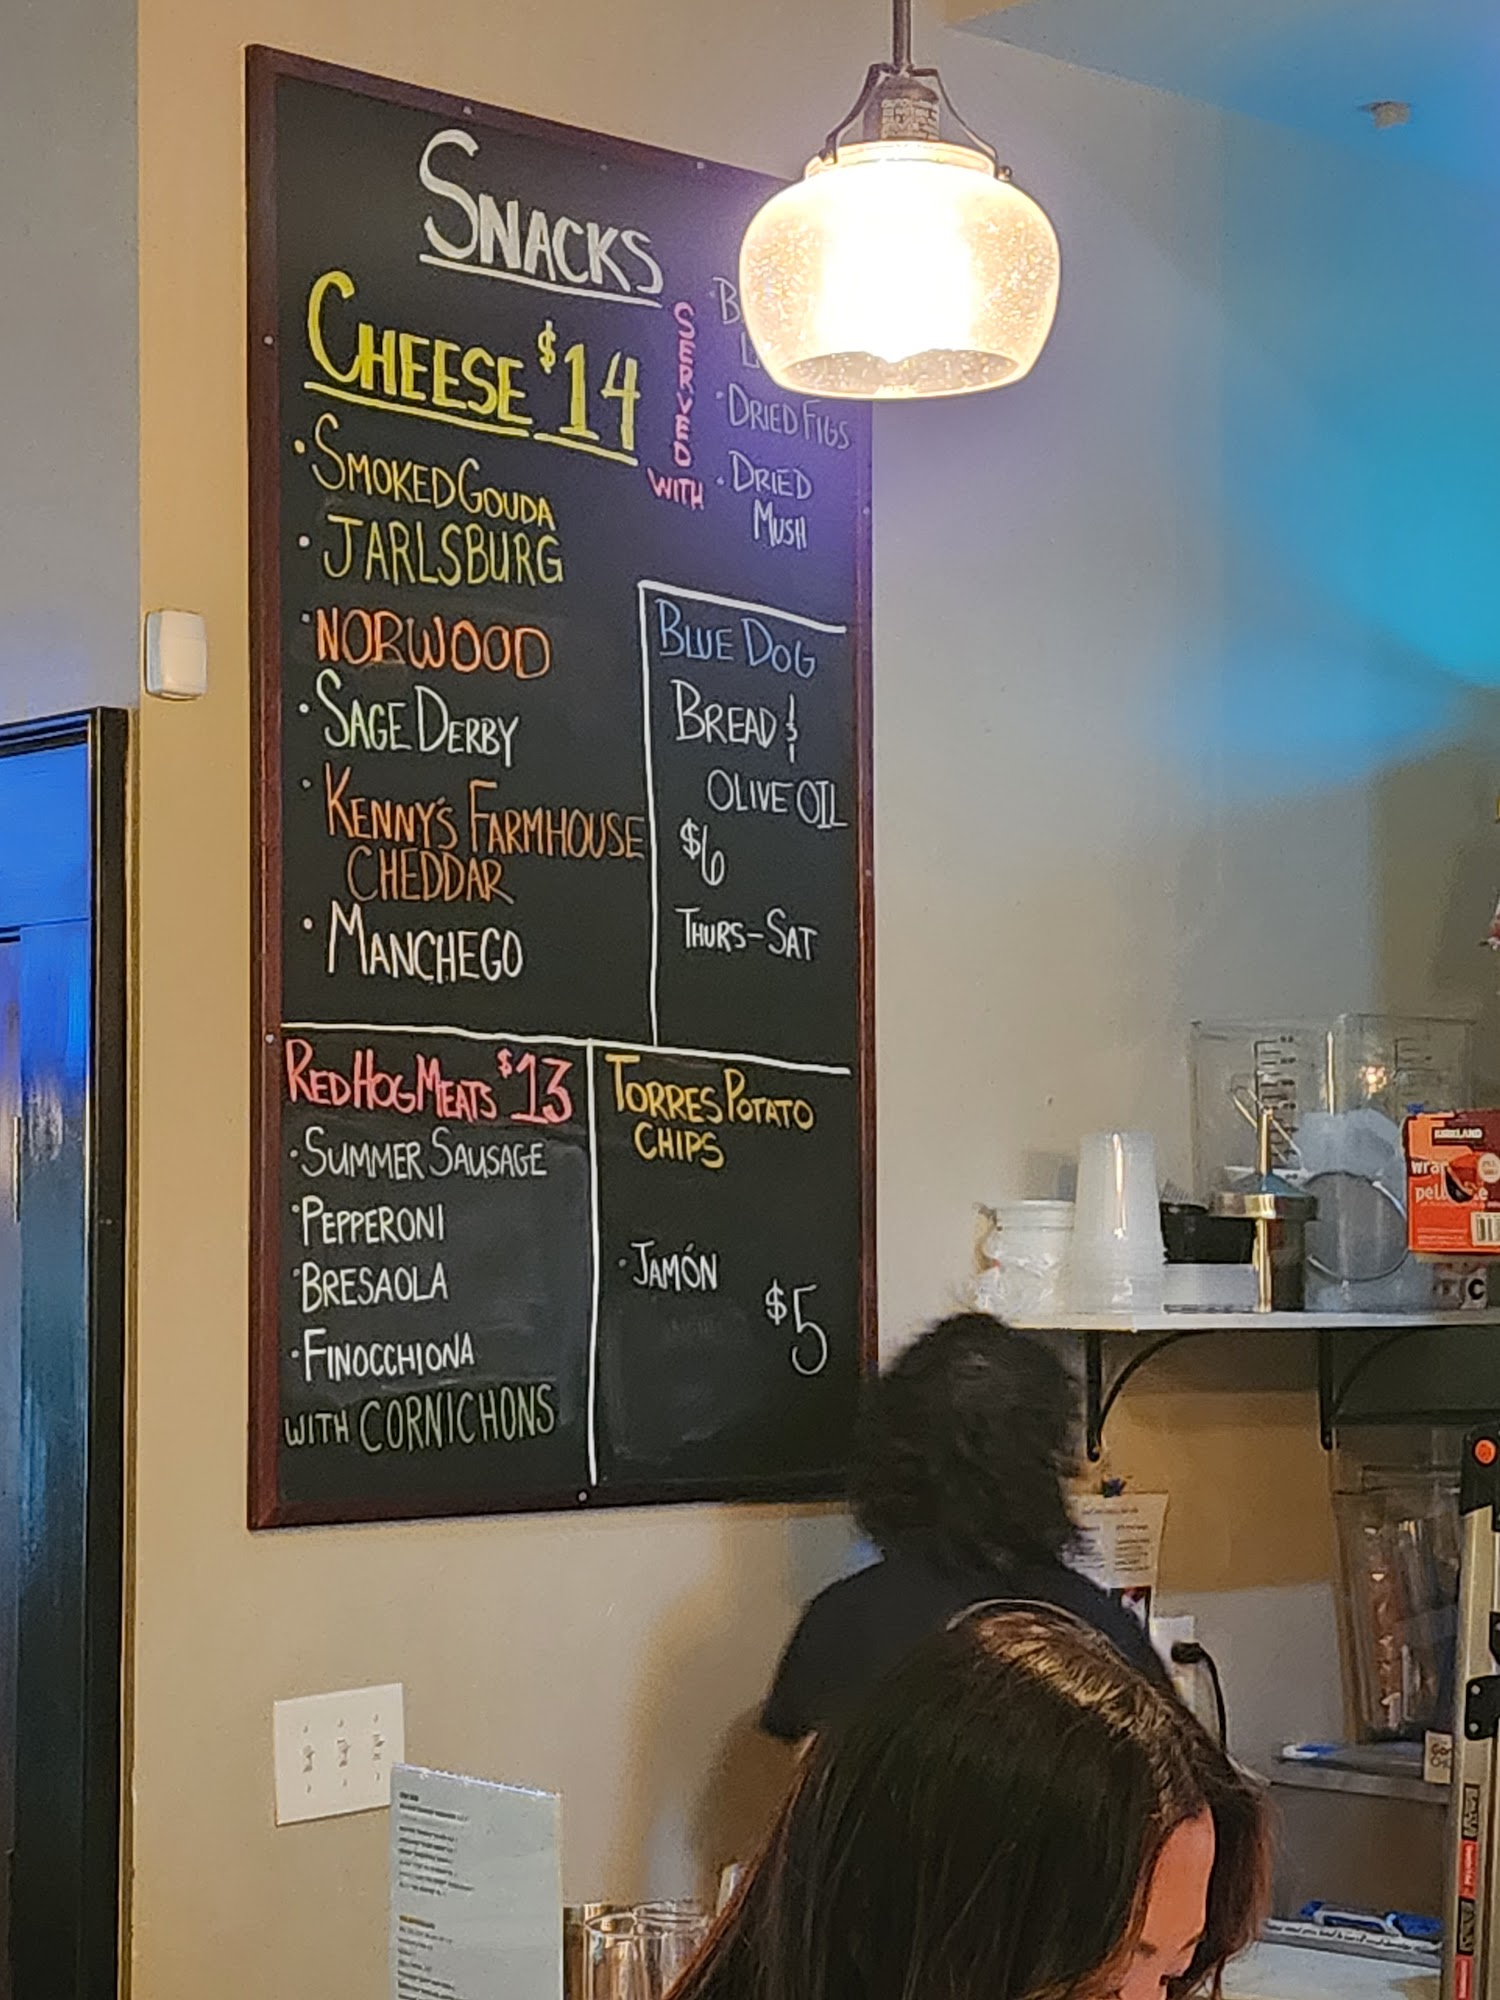 SNACKS
CHEESE $14
SERVED
WITH
· DRIED FIGS
· DRIED
MUSH
· SMOKED GOUDA
· JARLSBURG
· NORWOOD
· SAGE DERBY
· KENNY'S FARMHOUSE
CHEDDAR
· MANCHEGO
BLUE DOG
BREAD &
OLIVE OIL
$6
THURS-SAT
RED HOG MEATS $13
· SUMMER SAUSAGE
· PEPPERONI
· BRESAOLA
· FINOCCHIONA
WITH CORNICHONS
TORRES POTATO
CHIPS
· JAMÓN
$5
KIRKLAND